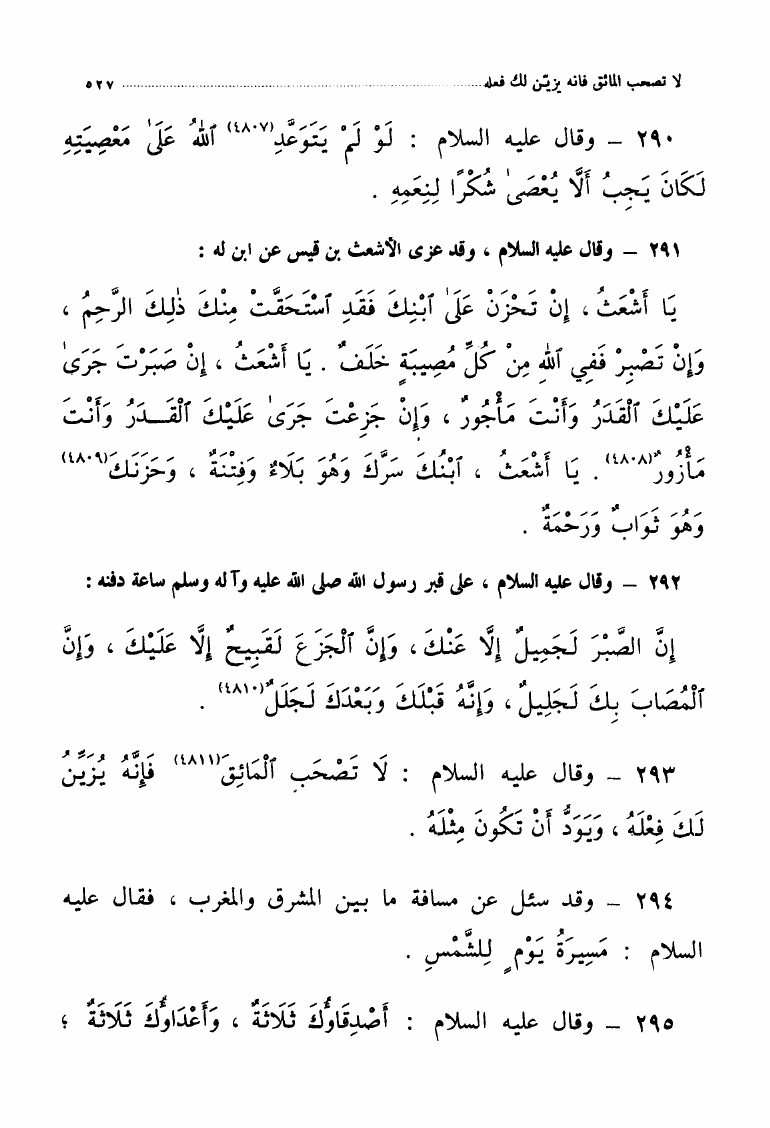 لا تصحب المائق فانه يزيّن لك فعله ........................................ ٥٢٧
٢٩٠ – وقال عليه السلام : لَوْ لَمْ يَتَوَعَّدِ(٤٨٠٧) ٱللهُ عَلَىٰ مَعْصِيَتِهِ
لَكَانَ يَجِبُ أَلَّا يُعْصَىٰ شُكْرًا لِنِعَمِهِ .
٢٩١ – وقال عليه السلام ، وقد عزى الأشعث بن قيس عن ابن له :
يَا أَشْعَثُ ، إِنْ تَحْزَنْ عَلَىٰ ٱبْنِكَ فَقَدِ ٱسْتَحَقَّتْ مِنْكَ ذٰلِكَ الرَّحِمُ ،
وَإِنْ تَصْبِرْ فَفِي ٱللهِ مِنْ كُلِّ مُصِيبَةٍ خَلَفٌ . يَا أَشْعَثُ ، إِنْ صَبَرْتَ جَرَىٰ
عَلَيْكَ ٱلْقَدَرُ وَأَنْتَ مَأْجُورٌ ، وَإِنْ جَزِعْتَ جَرَىٰ عَلَيْكَ ٱلْقَـدَرُ وَأَنْتَ
مَأْزُورٌ(٤٨٠٨) . يَا أَشْعَثُ ، ٱبْنُكَ سَرَّكَ وَهُوَ بَلَاءٌ وَفِتْنَةٌ ، وَحَزَنَكَ(٤٨٠٩)
وَهُوَ ثَوَابٌ وَرَحْمَةٌ .
٢٩٢ – وقال عليه السلام ، على قبر رسول الله صلى الله عليه وآله وسلم ساعة دفنه :
إِنَّ الصَّبْرَ لَجَمِيلٌ إِلَّا عَنْكَ ، وَإِنَّ ٱلْجَزَعَ لَقَبِيحٌ إِلَّا عَلَيْكَ ، وَإِنَّ
ٱلْمُصَابَ بِكَ لَجَلِيلٌ ، وَإِنَّهُ قَبْلَكَ وَبَعْدَكَ لَجَلَلٌ(٤٨١٠) .
٢٩٣ – وقال عليه السلام : لَا تَصْحَبِ ٱلْمَائِقَ(٤٨١١) فَإِنَّهُ يُزَيِّنُ
لَكَ فِعْلَهُ ، وَيَوَدُّ أَنْ تَكُونَ مِثْلَهُ .
٢٩٤ – وقد سئل عن مسافة ما بين المشرق والمغرب ، فقال عليه
السلام : مَسِيرَةُ يَوْمٍ لِلشَّمْسِ .
٢٩٥ – وقال عليه السلام : أَصْدِقَاؤُكَ ثَلَاثَةٌ ، وَأَعْدَاؤُكَ ثَلَاثَةٌ ؛